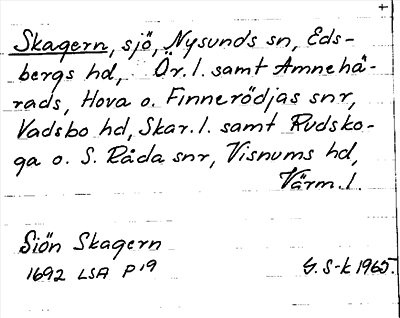 Skagern, sjö, Nysunds sn, Eds-
bergs hd, Ör.l. samt Amnehä-
rads, Hova o. Finnerödjas snr,
Vadsbo hd, Skar.l. samt Rudsko-
ga o. S. Råda snr, Visnums hd,
Värm.l.
Siön Skagern
1692 LSA P¹9
G. S-k 1965.